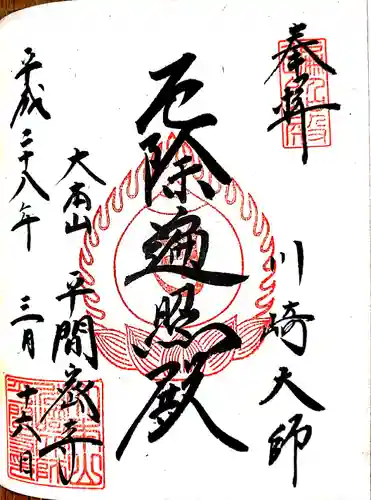 奉拝
川崎大師
厄除遍照殿
大本山 平間寺
平成二十八年 三月 十六日